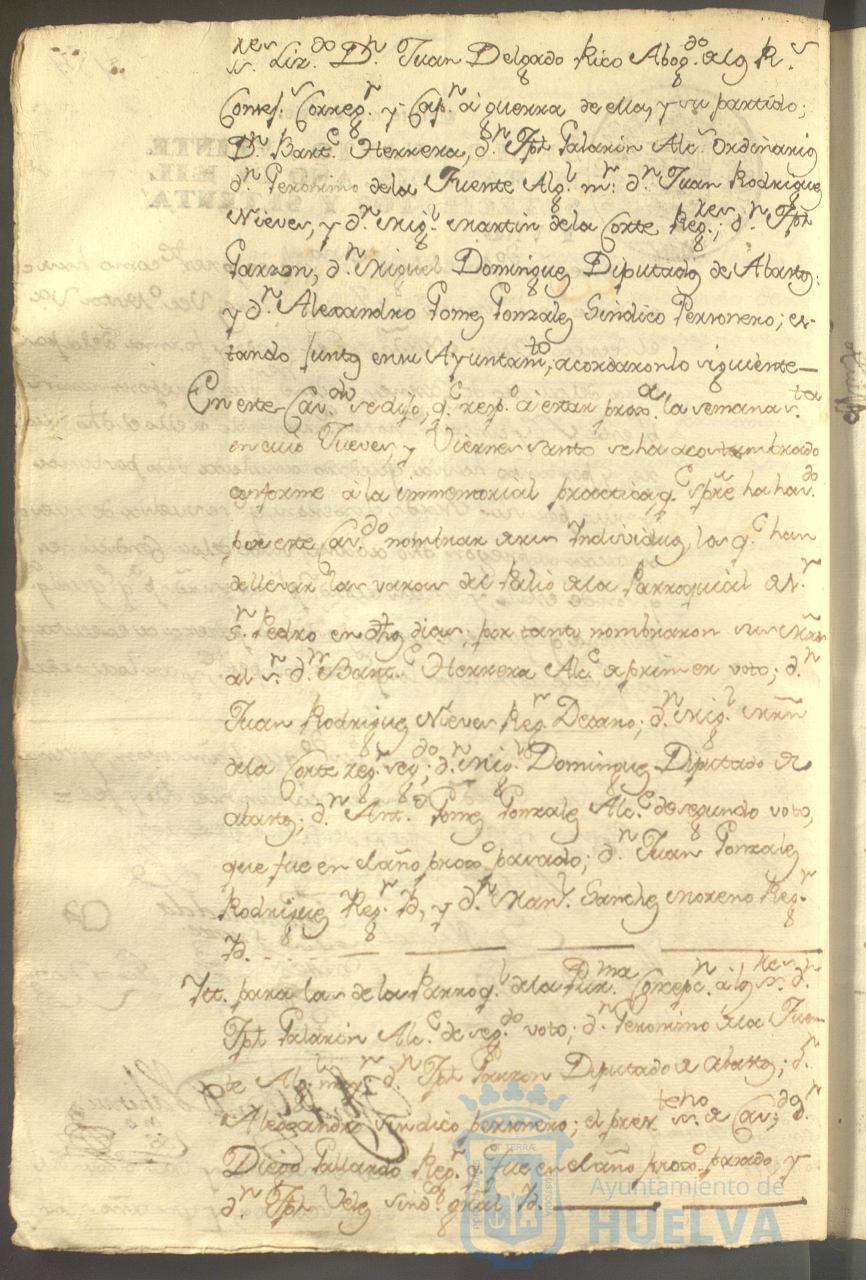 s.res Liz.do D.n Juan Delgado Rico Abog.do de los R.s
Consej.s Correg.r y Cap.n à guerra de ella, y su partido;
D.n Bart.e Herrera, d.n Jph Galarin Alc.s Ordinarios
d.n Geronimo de la Fuente Alg.l m.r d.n Juan Rodriguez
Nieves, y d.n Mig.l Martin de la Corte Reg.res; d.n Jph
Garzon, d.n Miguel Dominguez Diputados de Abastos;
y d.n Alexandro Gomez Gonzalez Sindico Personero; es-
tando juntos en su Ayuntam.to, acordaron lo siguiente
En este Cav.do se dijo, q.e resp.o à estar prox.a la semana s.ta
en cuio Jueves y Viernes santo se ha acostumbrado
conforme à la immemorial practica, q.e spre ha hav.do
por este Cav.do nombrar de sus Individuos, los q.e han
de llevar las varas del Palio de la Parroquial de N.r
S.r S.n Pedro en dhos dias; por tanto nombraron sus Mrds
al s.r d.n Bart.e Herrera Alc.e de primer voto; d.n
Juan Rodriguez Nieves Reg.r Decano; d.n Mig.l Mrn
de la Corte reg.r seg.do; d.n Mig.l Dominguez Diputado de
abastos; d.n Ant.o Gomez Gonzalez Alc.e de segundo voto,
que fue en el año prox.o pasado; d.n Juan Gonzalez
Rodriguez Reg.r Id. y d.n Man.l Sanchez Moreno Reg.r
Id.
Itt. para las de la Parroq.l de la Pur.ma Concepc.n à los s.res d.n
Jph Galarin Alc.e de seg.do voto; d.n Geronimo de la Fuen
te Alg.l may.r d.n Jph Garzon Diputado de abastos; d.n
Alexandro sindico personero; el pres.te ss.no de Cav.do; d.n
Diego Gallardo Reg.r q. fue en el año prox.o pasado, y
d.n Jph Velez sind.co gral Id.
Ayuntamiento de
HUELVA